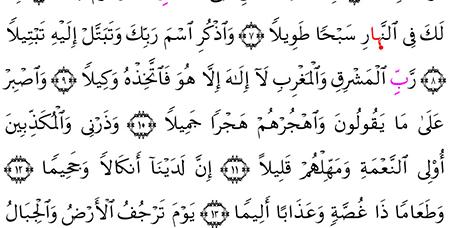 لَكَ فِى ٱلنَّهَارِ سَبْحًا طَوِيلًا ﴿٧﴾ وَٱذْكُرِ ٱسْمَ رَبِّكَ وَتَبَتَّلْ إِلَيْهِ تَبْتِيلًا
﴿٨﴾ رَّبِّ ٱلْمَشْرِقِ وَٱلْمَغْرِبِ لَآ إِلَـٰهَ إِلَّا هُوَ فَٱتَّخِذْهُ وَكِيلًا ﴿٩﴾ وَٱصْبِرْ
عَلَىٰ مَا يَقُولُونَ وَٱهْجُرْهُمْ هَجْرًا جَمِيلًا ﴿١٠﴾ وَذَرْنِى وَٱلْمُكَذِّبِينَ
أُو۟لِى ٱلنَّعْمَةِ وَمَهِّلْهُمْ قَلِيلًا ﴿١١﴾ إِنَّ لَدَيْنَآ أَنكَالًا وَجَحِيمًا ﴿١٢﴾
وَطَعَامًا ذَا غُصَّةٍ وَعَذَابًا أَلِيمًا ﴿١٣﴾ يَوْمَ تَرْجُفُ ٱلْأَرْضُ وَٱلْجِبَالُ